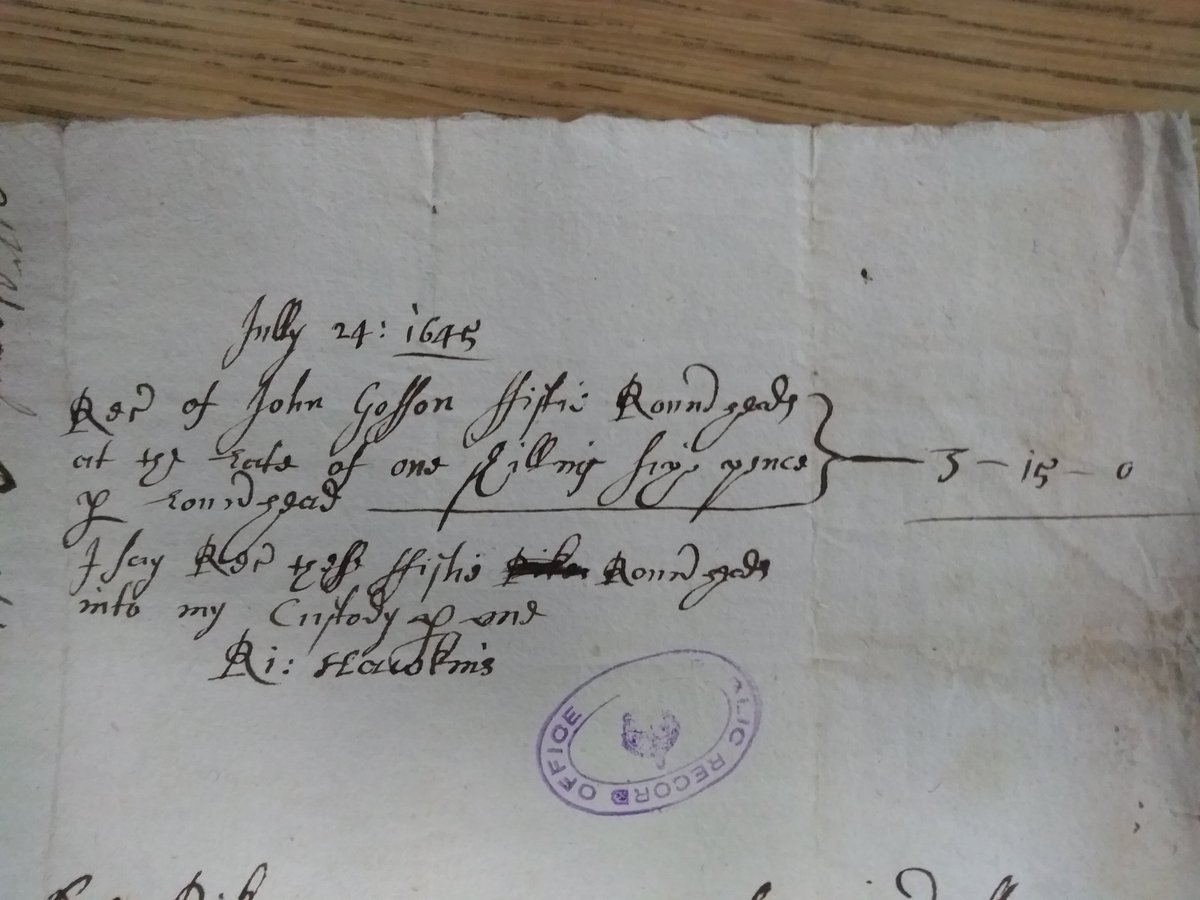 Jully 24: 1645
Recd of John Gosson ffiftie Roundheads
at the rate of one shilling six pence 3 - 15 - 0
p roundhead
I say Recd these ffiftie Roundheads
into my Custody p me
Ri: Hawkins
PUBLIC RECORD OFFICE